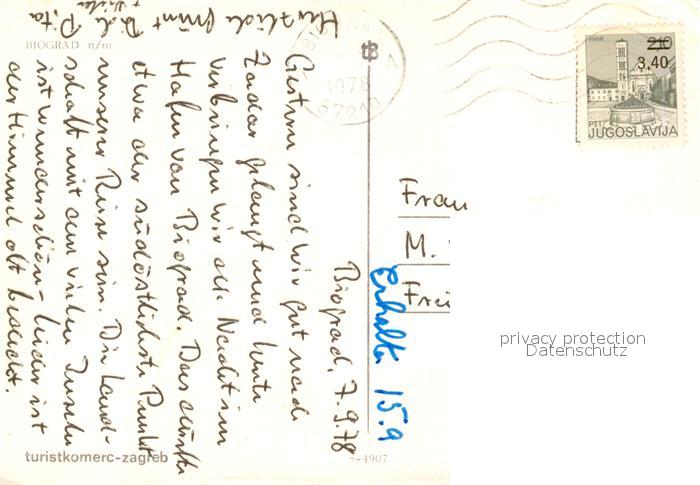 BIOGRAD n/m
Biograd, 7.9.78
Gestern sind wir gut nach
Zadar gelangt und heute
verbringen wir die Nacht im
Hafen von Biograd. Das dürfte
etwa der südöstlichste Punkt
unserer Reise sein. Die Land-
schaft mit den vielen Inseln
ist wunderschön - leider ist
der Himmel oft bedeckt.
Herzliche Grüsst Dich Pita
+
Erhalten 15.9
turistkomerc-zagreb
-4907
1978
57210
HVAR
2.10
3,40
PTT
JUGOSLAVIJA
Frau
M.
Frei
privacy protection
Datenschutz